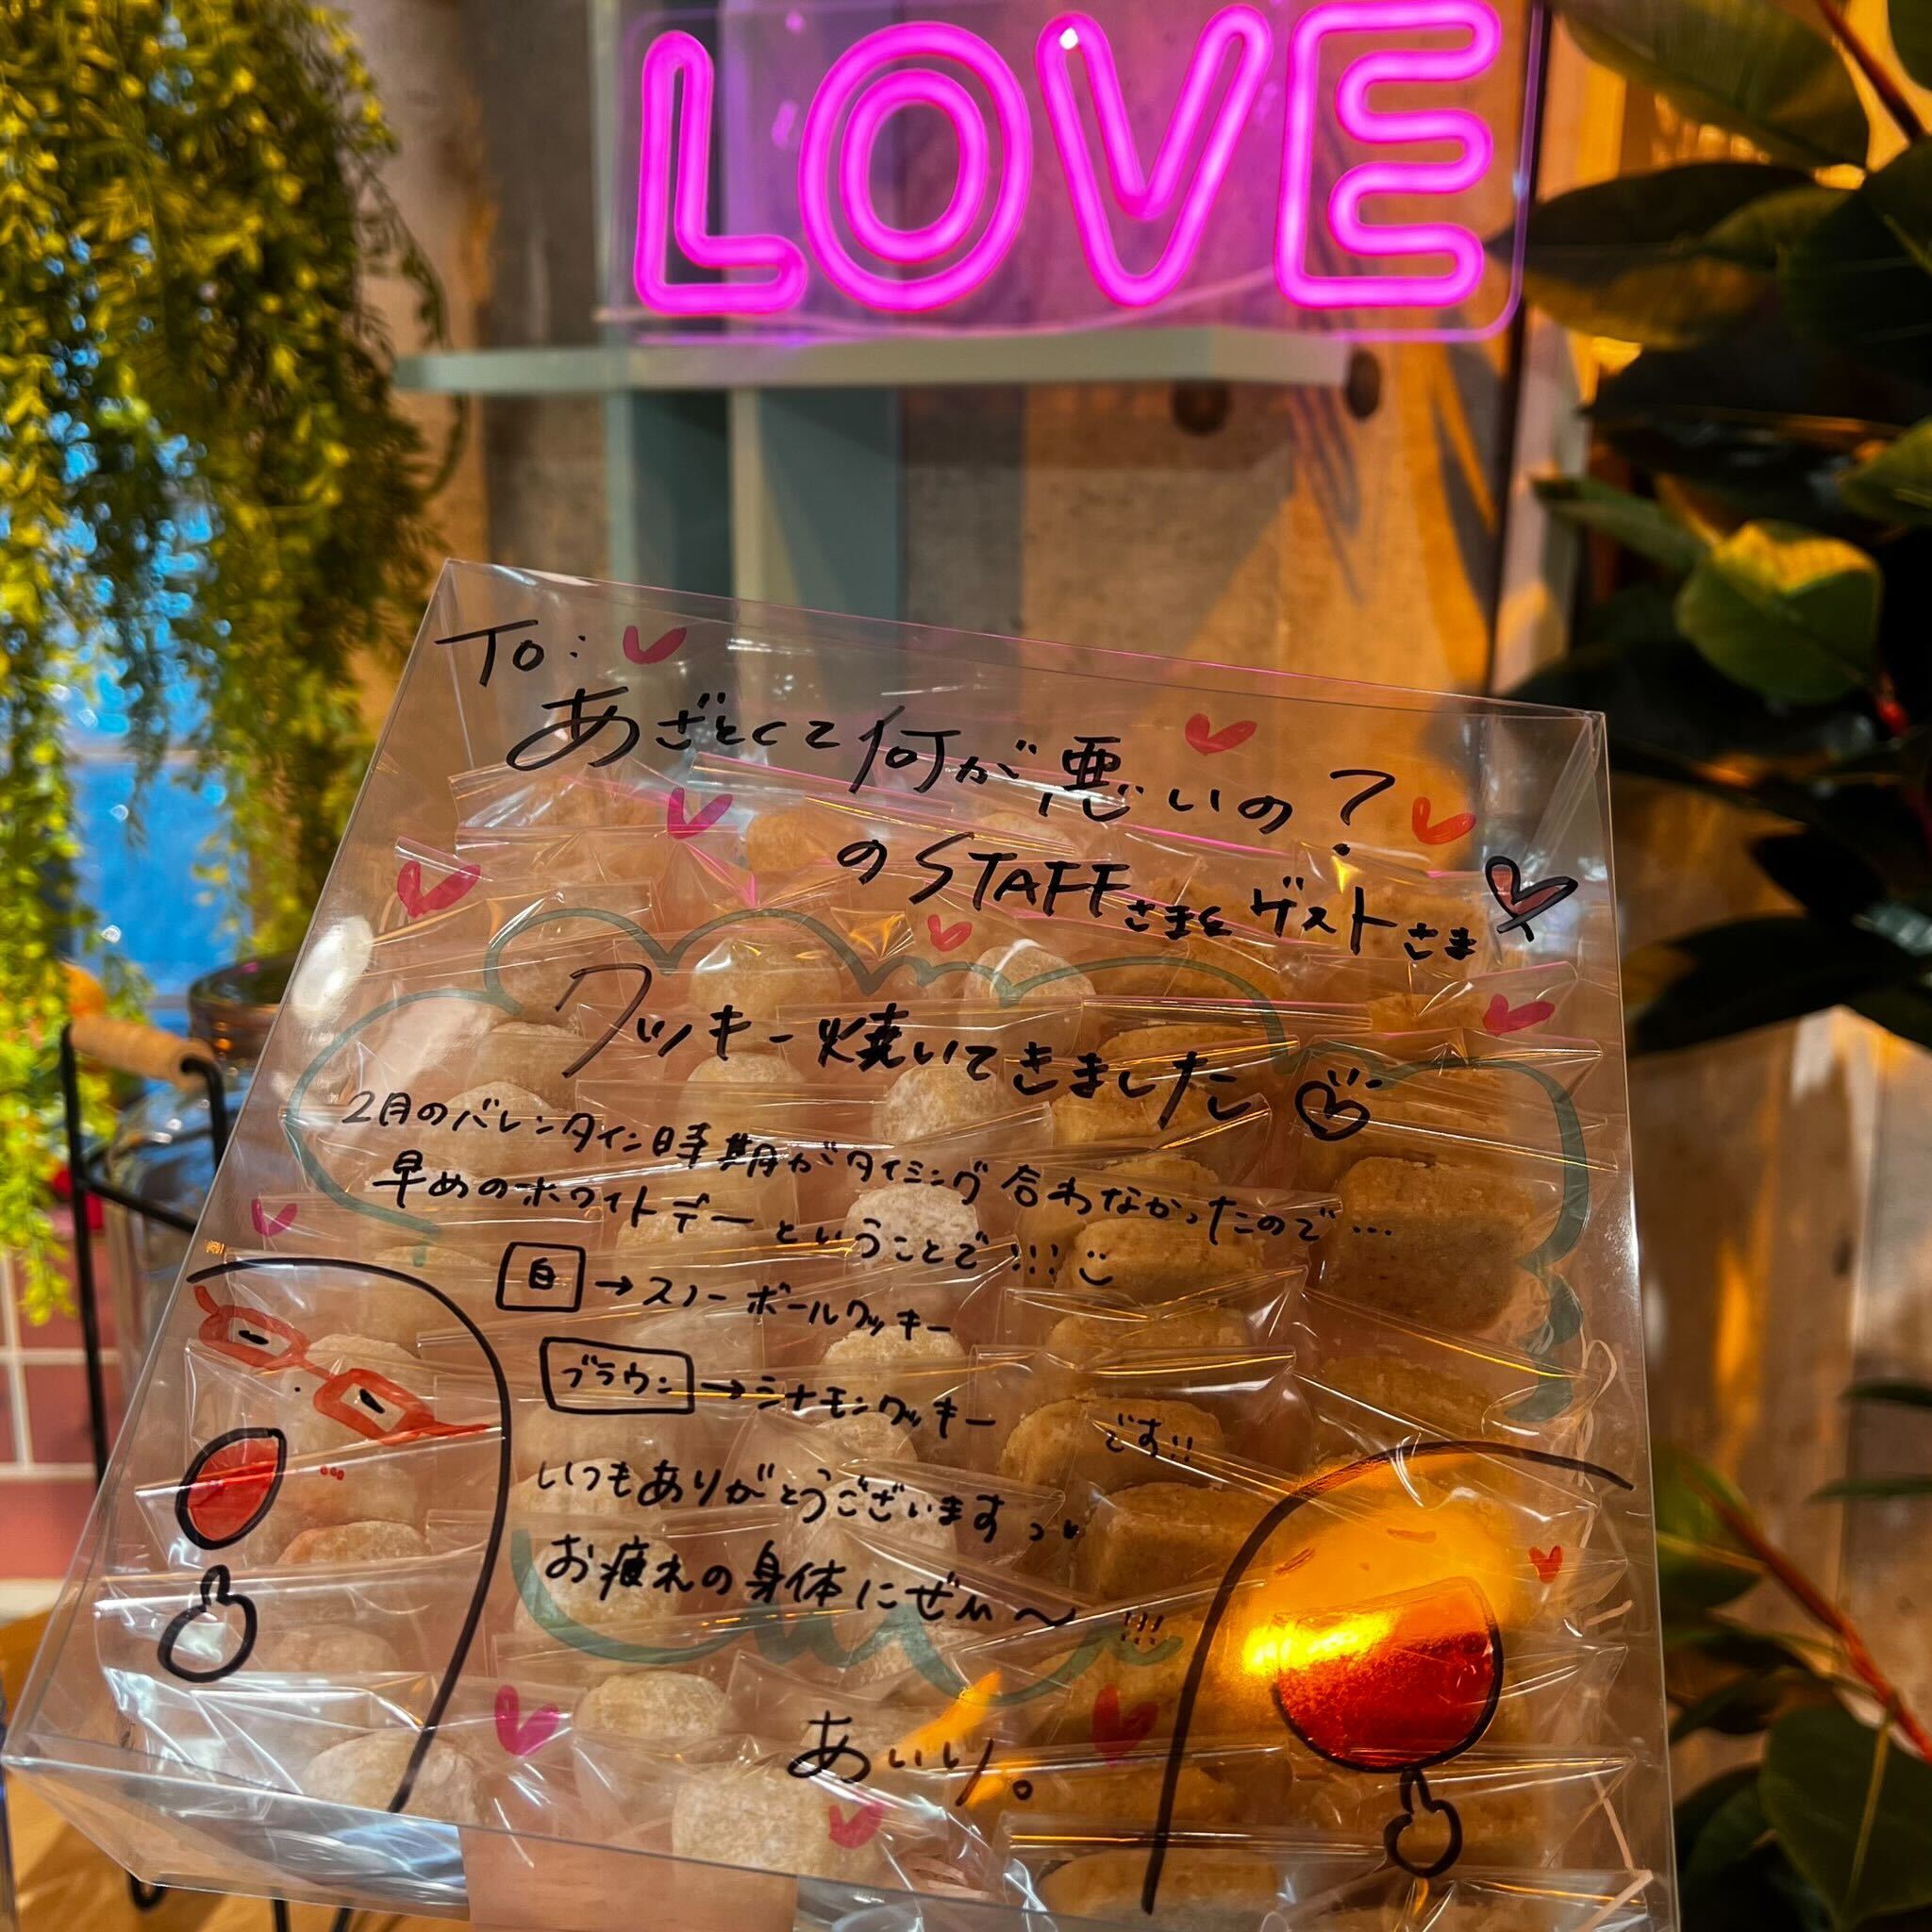 LOVE
To:
あざとくて何が悪いの?
のSTAFFさまとゲストさま
クッキー焼いてきました
2月のバレンタイン時期がタイミング合わなかったので…
早めのホワイトデーということで!!!
白→スノーボールクッキー
ブラウン→シナモンクッキー です!!
いつもありがとうございますっ
お疲れの身体にぜひ〜!!!
あいり。